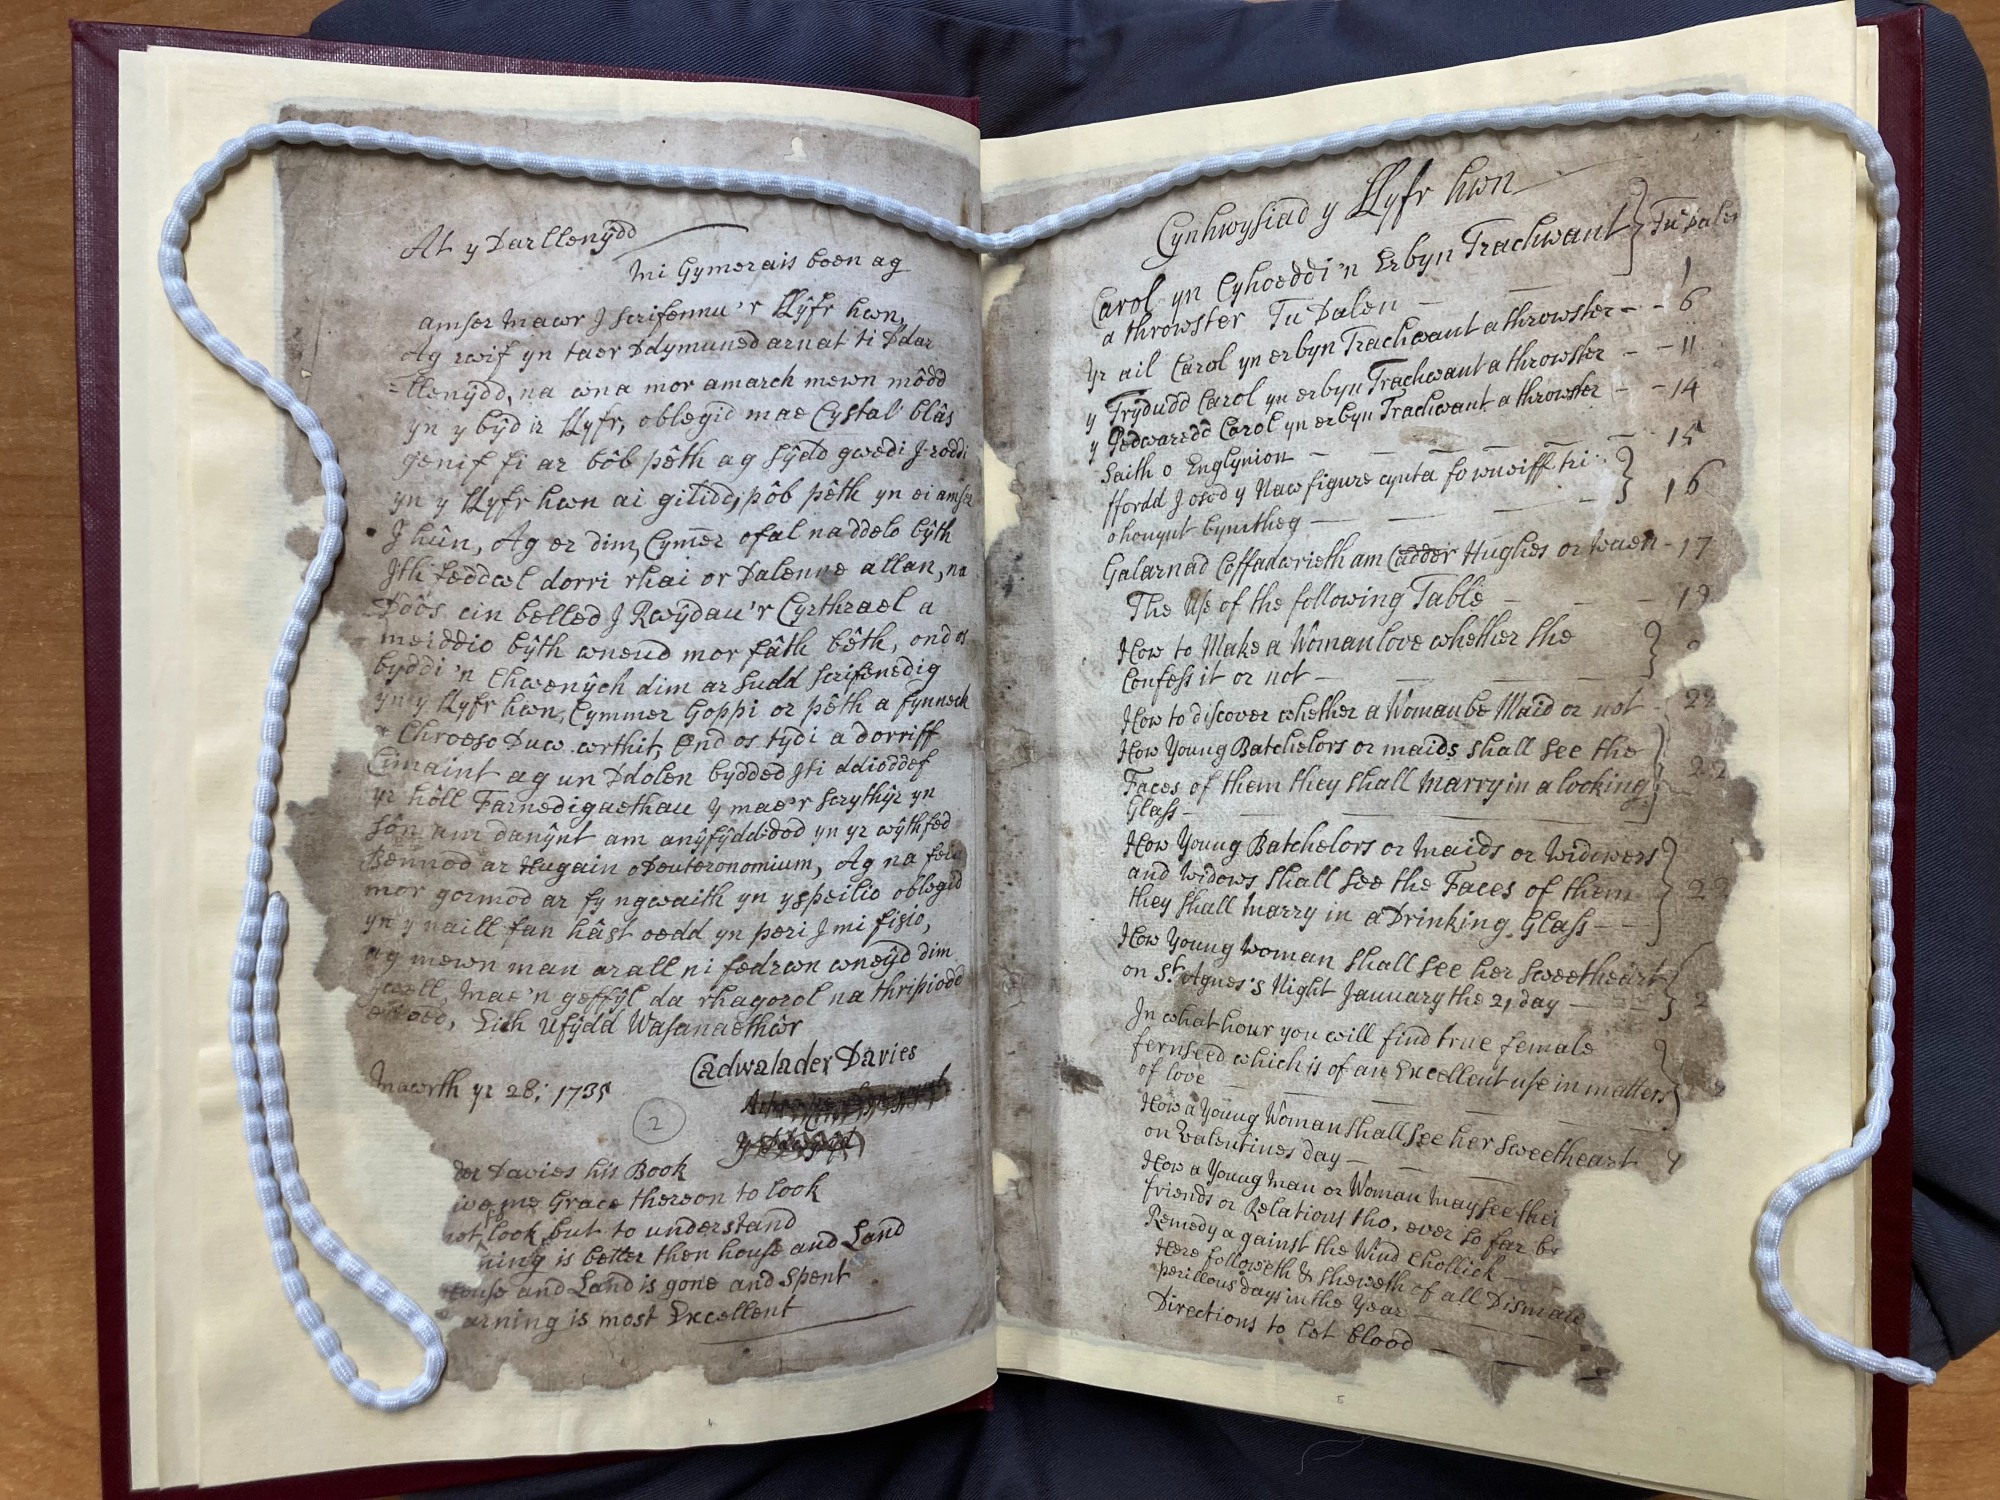 At y Darllenŷdd
Mi Gymerais boen ag
amser mawr J scrifennu'r Llyfr hwn,
Ag rwif yn taer Ddymuned arnat ti Ddar
=llenŷdd, na wna mor amarch mewn môdd
yn y bŷd ir Llyfr, oblegid mae Cystal blâs
genif fi ar bôb pêth ag sŷdd gwedi J roddi
yn y Llyfr hwn ai gilidd, pôb pêth yn ei amser
J hûn, Ag er dim, Cymer ofal na ddelo bŷth
Jth feddwl dorri rhai or Dalenne allan, na
Ddôs cin belled J Rwŷdau'r Cyrthrael a
meiddio bŷth wneud mor fâth bêth, ond os
byddi'n Chwenŷch dim ar sudd scrifenedig
yn y Llyfr hwn, Cymmer Goppi or pêth a fynnech
a Chroeso Duw wrthit, Ond os tydi a dorriff
Cimaint ag un Ddolen bydded Jti ddioddef
yr hôll Farnedigaethau y mae'r scrythŷr yn
sôn am danŷnt am anŷfŷdddod yn yr wŷthfed
Bennod ar Hugain o Deuteronomium, Ag na feia
mor gormod ar fy ngwaith yn yspeilio oblegid
yn y naill fan hâst oedd yn peri J mi fisio,
ag mewn man arall ni fedrwn wneŷd dim
gwell, mae'n geffŷl da rhagorol na thripiodd
erioed, Eich Ufŷdd Wasanaethŵr
Cadwalader Davies
Mawrth yr 28: 1735
2
der Davies his Book
ive me Grace thereon to look
not look but to understand
ning is better then house and Land
House and Land is gone and spent
arning is most Excellent
Cynhwysiad y Llyfr hwn
Carol yn Cyhoeddi'n Erbyn Trachwant } Tu Dalen
a throwster Tu Dalen — — 1
Yr ail Carol yn erbyn Trachwant a throwster - - 6
y Trydudd Carol yn erbyn Trachwant a throwster - - 11
y Pedwaredd Carol yn erbyn Trachwant a throwster - - 14
Saith o Englynion — — — — 15
ffordd J osod y Naw figure cynta fo wneiff tri }
o honynt bymtheg — — — 16
Galarnad Coffadwrieth am Cadder Hughes or waen - 17
The Use of the following Table — — — 19
How to Make a Woman love whether she }
Confess it or not — — —
How to discover whether a Woman be Maid or not - 22
How Young Batchelors or maids shall see the }
Faces of them they shall marry in a looking 22
Glass — — —
How Young Batchelors or Maids or Widowers }
and Widows shall see the Faces of them 22
they shall Marry in a Drinking Glass — —
How Young woman shall see her sweetheart }
on St. Agnes's Night January the 21, day — — 2
In what hour you will find true female }
fernseed which is of an Excellent use in matters
of love — — —
How a Young Woman shall see her sweetheart
on Valentines day — —
How a Young Man or Woman may see thei
friends or Relations tho, ever so far be
Remedy against the Wind Chollick —
Here followeth & sheweth of all Dismale
perillous days in the Year —
Directions to let blood —
4
5